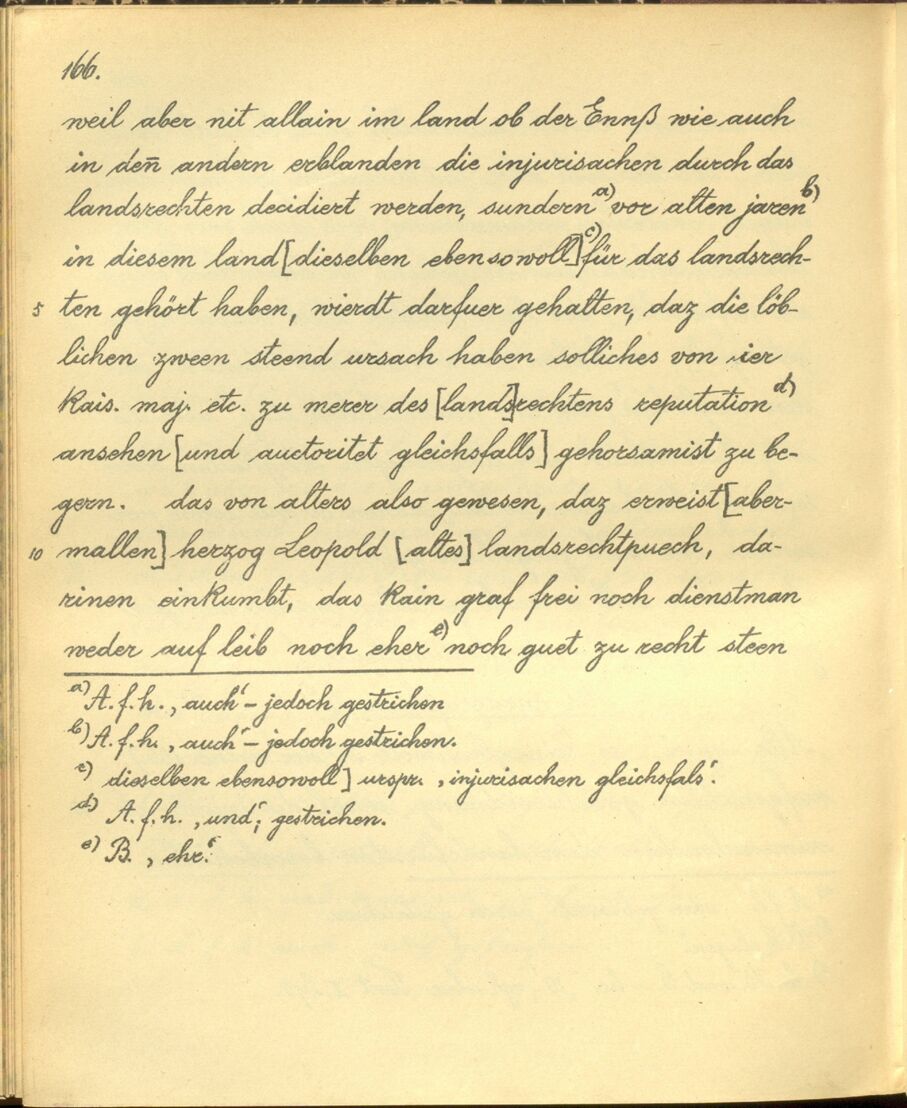 166.
weil aber nit allain im land ob der Ennß wie auch
in den̄ andern erblanden die injurisachen durch das
landsrechten decidiert werden, sundern a) vor alten jaren b)
in diesem land [dieselben ebensowoll] c) für das landsrech-
5 ten gehört haben, wierdt darfuer gehalten, daz die löb-
lichen zween steend ursach haben solliches von ier
Kais. maj. etc. zu merer des [lands]rechtens reputation d)
ansehen [und auctoritet gleichsfalls] gehorsamist zu be-
gern. das von alters also gewesen, daz erweist [aber-
10 mallen] herzog Leopold [altes] landsrechtpuech, da-
rinen einkumbt, das kain graf frei noch dienstman
weder auf leib noch eher e) noch guet zu recht steen
a) A. f. h. ‚auch‘ – jedoch gestrichen
b) A. f. h. ‚auch‘ – jedoch gestrichen.
c) dieselben ebensowoll] urspr. ‚injurisachen gleichsfals‘.
d) A. f. h. ‚und‘; gestrichen.
e) B. ‚ehr.‘